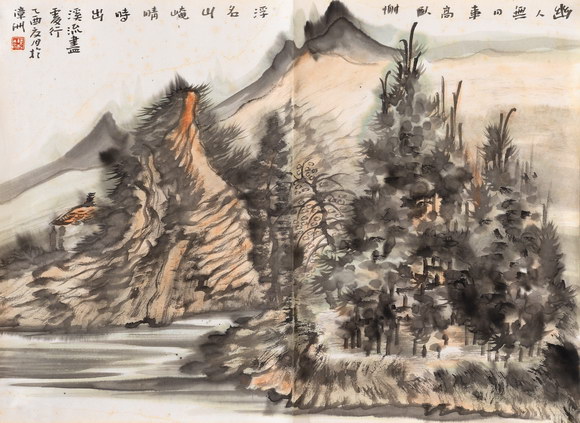 幽人無事高臥謝浮名山崦晴時出
溪流盡
處行
乙酉夏月於
漳州